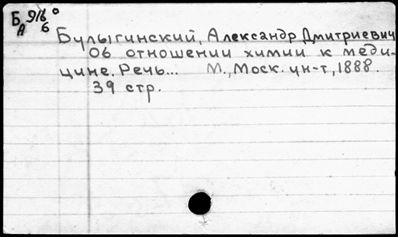 Б 916 о
А 6
Булыгинский, Александр Дмитриевич
Об отношении химии к меди-
цине. Речь... М., Моск. ун-т, 1888.
39 стр.